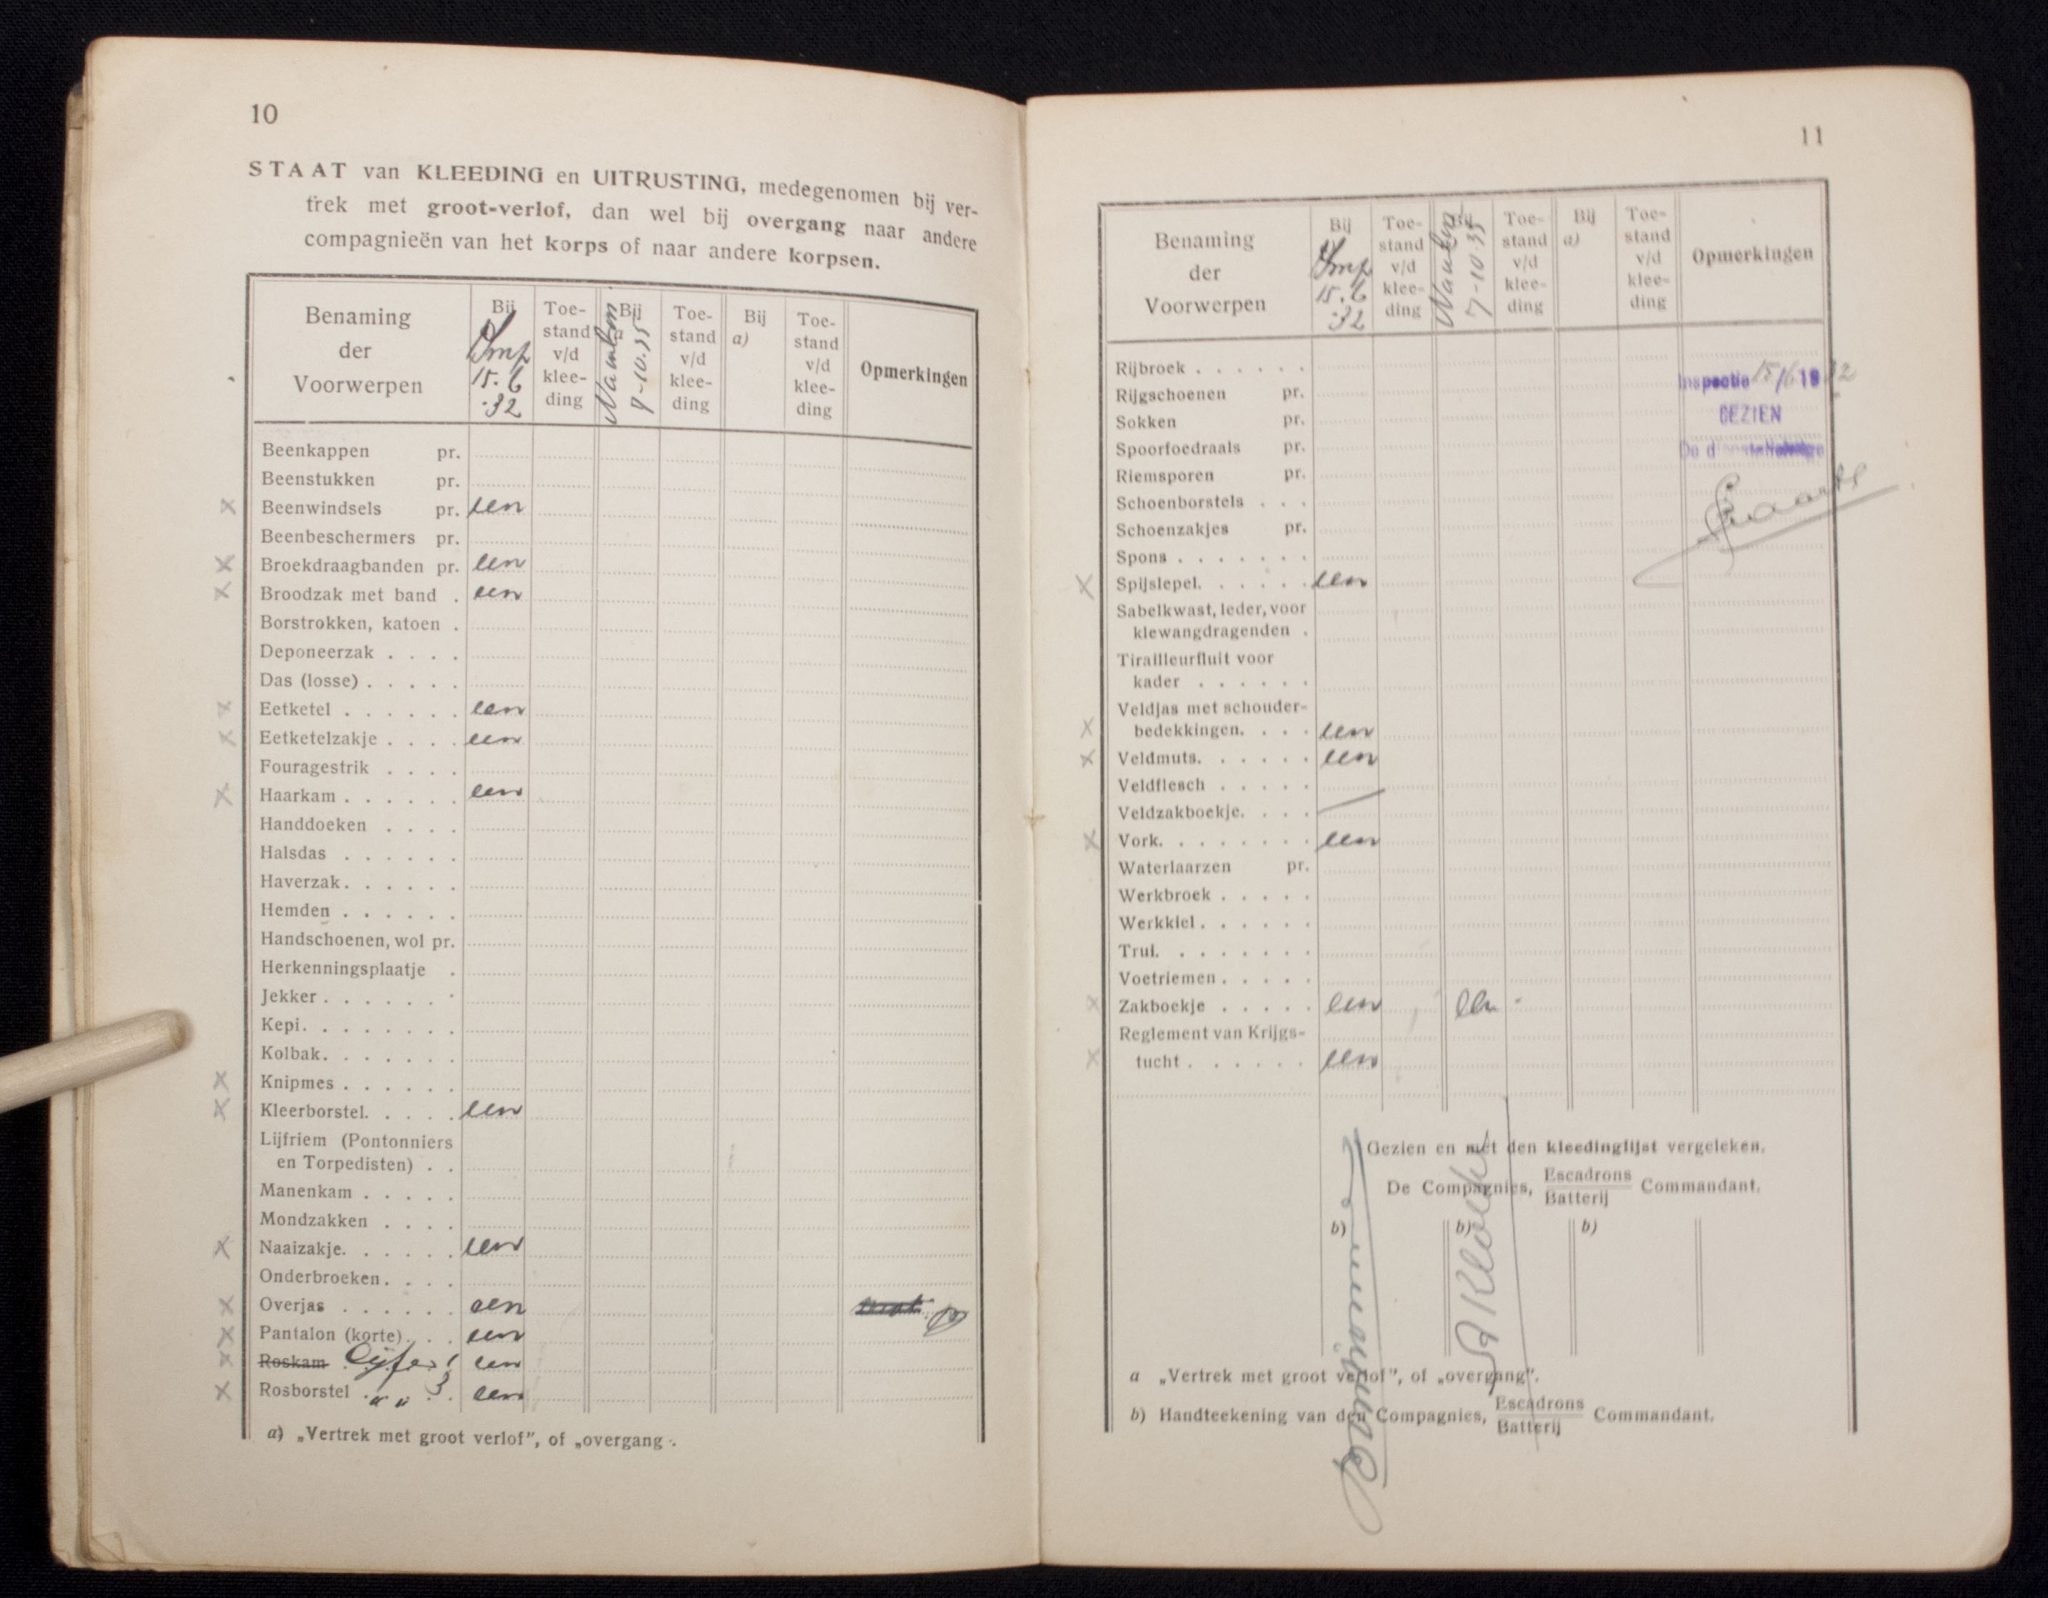 10
STAAT van KLEEDING en UITRUSTING, medegenomen bij ver-
trek met groot-verlof, dan wel bij overgang naar andere
compagnieën van het korps of naar andere korpsen.
Benaming der Voorwerpen | Bij 15.6.32 | Toe-stand v/d klee-ding | Bij 10.35 | Toe-stand v/d klee-ding | Bij a) | Toe-stand v/d klee-ding | Opmerkingen
Beenkappen pr.
Beenstukken pr.
x Beenwindsels pr. een
Beenbeschermers pr.
x Broekdraagbanden pr. een
x Broodzak met band . een
Borstrokken, katoen .
Deponeerzak . . . .
Das (losse) . . . . .
x Eetketel . . . . . . een
x Eetketelzakje . . . . een
Fouragestrik . . . .
x Haarkam . . . . . . een
Handdoeken . . . .
Halsdas . . . . . .
Haverzak . . . . . .
Hemden . . . . . .
Handschoenen, wol pr.
Herkenningsplaatje .
Jekker . . . . . . .
Kepi. . . . . . . .
Kolbak. . . . . . .
x Knipmes . . . . . .
x Kleerborstel. . . . . een
Lijfriem (Pontonniers
en Torpedisten) . .
Manenkam . . . . .
Mondzakken . . . .
x Naaizakje. . . . . . een
Onderbroeken . . . .
x Overjas . . . . . . een
x Pantalon (korte) . . . een
x Roskam een
x Rosborstel „ „ 3 . een
a) „Vertrek met groot verlof”, of „overgang .
11
Benaming der Voorwerpen | Bij 15.6.32 | Toe-stand v/d klee-ding | Bij 7-10.35 | Toe-stand v/d klee-ding | Bij a) | Toe-stand v/d klee-ding | Opmerkingen
Rijbroek . . . . . .
Inspectie 15/6 1932
Rijgschoenen pr.
GEZIEN
Sokken pr.
De d
Spoorfoedraals pr.
Riemsporen pr.
Schoenborstels . . .
Schoenzakjes pr.
Spons . . . . . . .
x Spijslepel. . . . . . een
Sabelkwast, leder, voor
klewangdragenden .
Tirailleurfluit voor
kader . . . . . .
Veldjas met schouder-
x bedekkingen. . . . een
x Veldmuts. . . . . . een
Veldflesch . . . . .
Veldzakboekje. . . .
x Vork. . . . . . . . een
Waterlaarzen pr.
Werkbroek . . . . .
Werkkiel . . . . . .
Trui. . . . . . . .
Voetriemen . . . . .
x Zakboekje . . . . . een een
Reglement van Krijgs-
x tucht . . . . . . een
Gezien en met den kleedinglijst vergeleken.
De Compagnies, Escadrons Batterij Commandant.
b) b) b)
a „Vertrek met groot verlof”, of „overgang”.
b) Handteekening van den Compagnies, Escadrons Batterij Commandant.